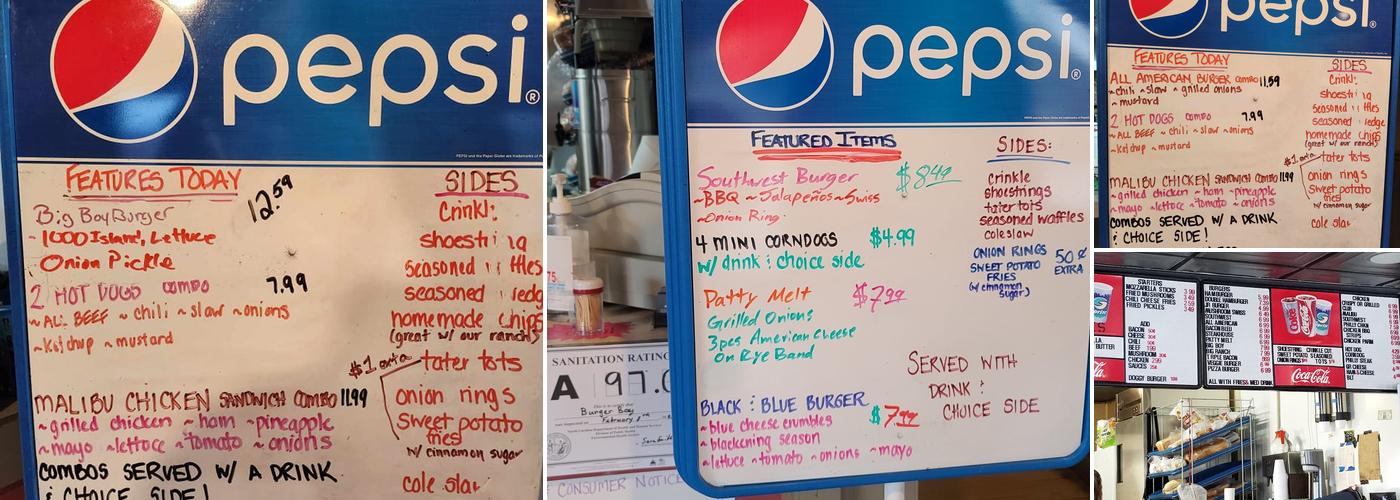 pepsi®
FEATURES TODAY
12.59
Big Boy Burger
~ 1000 Island, Lettuce
Onion Pickle
2 HOT DOGS combo 7.99
~ ALL BEEF ~ chili ~ slaw ~ onions
~ Ketchup ~ mustard
MALIBU CHICKEN SANDWICH COMBO 11.99
~ grilled chicken ~ ham ~ pineapple
~ mayo ~ lettuce ~ tomato ~ onions
COMBOS SERVED W/ A DRINK
& CHOICE SIDE!
SIDES
seasoned
seasoned
homemade chips
(great w/ our ranch)
$1 extra
tater tots
onion rings
Sweet potato
fries
w/ cinnamon sugar
cole slaw
pepsi®
FEATURED ITEMS
Southwest Burger $8.49
~BBQ ~Jalapeños~Swiss
~Onion Ring
4 MINI CORNDOGS $4.99
w/ drink & choice side
Patty Melt $7.99
Grilled Onions
3pcs American Cheese
On Rye Band
BLACK & BLUE BURGER $7.99
~blue cheese crumbles
~blackening season
~lettuce ~tomato ~onions ~mayo
SIDES:
crinkle
shoestrings
tater tots
seasoned waffles
coleslaw
ONION RINGS
SWEET POTATO
FRIES
(w/ cinnamon
sugar)
50¢
EXTRA
SERVED WITH
DRINK &
CHOICE SIDE
SANITATION RATING
A 97.0
Burger Boy
February
CONSUMER NOTICE
pepsi
FEATURES TODAY
ALL AMERICAN BURGER combo 11.59
~chili ~slaw ~grilled onions
~mustard
2 HOT DOGS combo 7.99
~ALL BEEF ~chili ~slaw ~onions
~Ketchup ~mustard
MALIBU CHICKEN SANDWICH COMBO 11.99
~grilled chicken ~ham ~pineapple
~mayo ~lettuce ~tomato ~onions
COMBOS SERVED W/ A DRINK
& CHOICE SIDE!
SIDES
seasoned
seasoned
homemade chips
(great w/ our ranch)
$1 extra
tater tots
onion rings
Sweet potato
fries
w/ cinnamon sugar
cole slaw
STARTERS
MOZZARELLA STICKS
FRIED MUSHROOMS
CHILI CHEESE FRIES
FRIED PICKLES
ADD
BACON
CHEESE
CHILI
BEEF
MUSHROOM
CHICKEN
SAUCES
DOGGY BURGER
BURGERS
HAMBURGER
DOUBLE HAMBURGER
JR BURGER
MUSHROOM SWISS
SOUTHWEST
ALL AMERICAN
BACON BLEU
STEAKHOUSE
PATTY MELT
BIG BOY
BIG RANCH
TRIPLE BACON
VEGGIE BURGER
PIZZA BURGER
Coca-Cola
CHICKEN
CRISPY OR GRILLED
CLUB
MALIBU
SOUTHWEST
PHILLY CHKN
CHICKEN BBQ
STRIPS
CHICKEN PARM
HOT DOG
CORN DOG
PHILLY STEAK
BLT